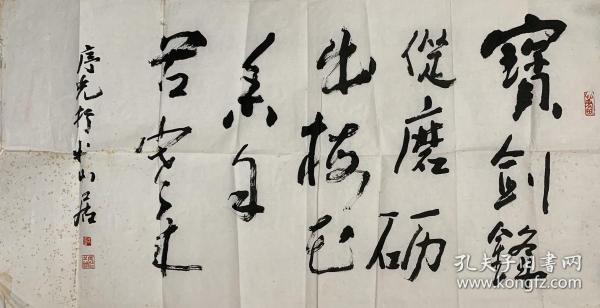 寶劍鋒
從磨砺
出梅花
香自
苦寒來
光於山居
孔夫子旧书网
www.kongfz.com